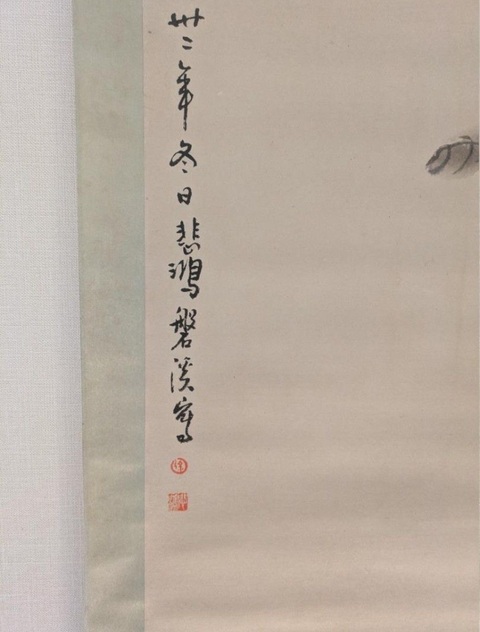 卅二年冬日悲鴻磐溪寫